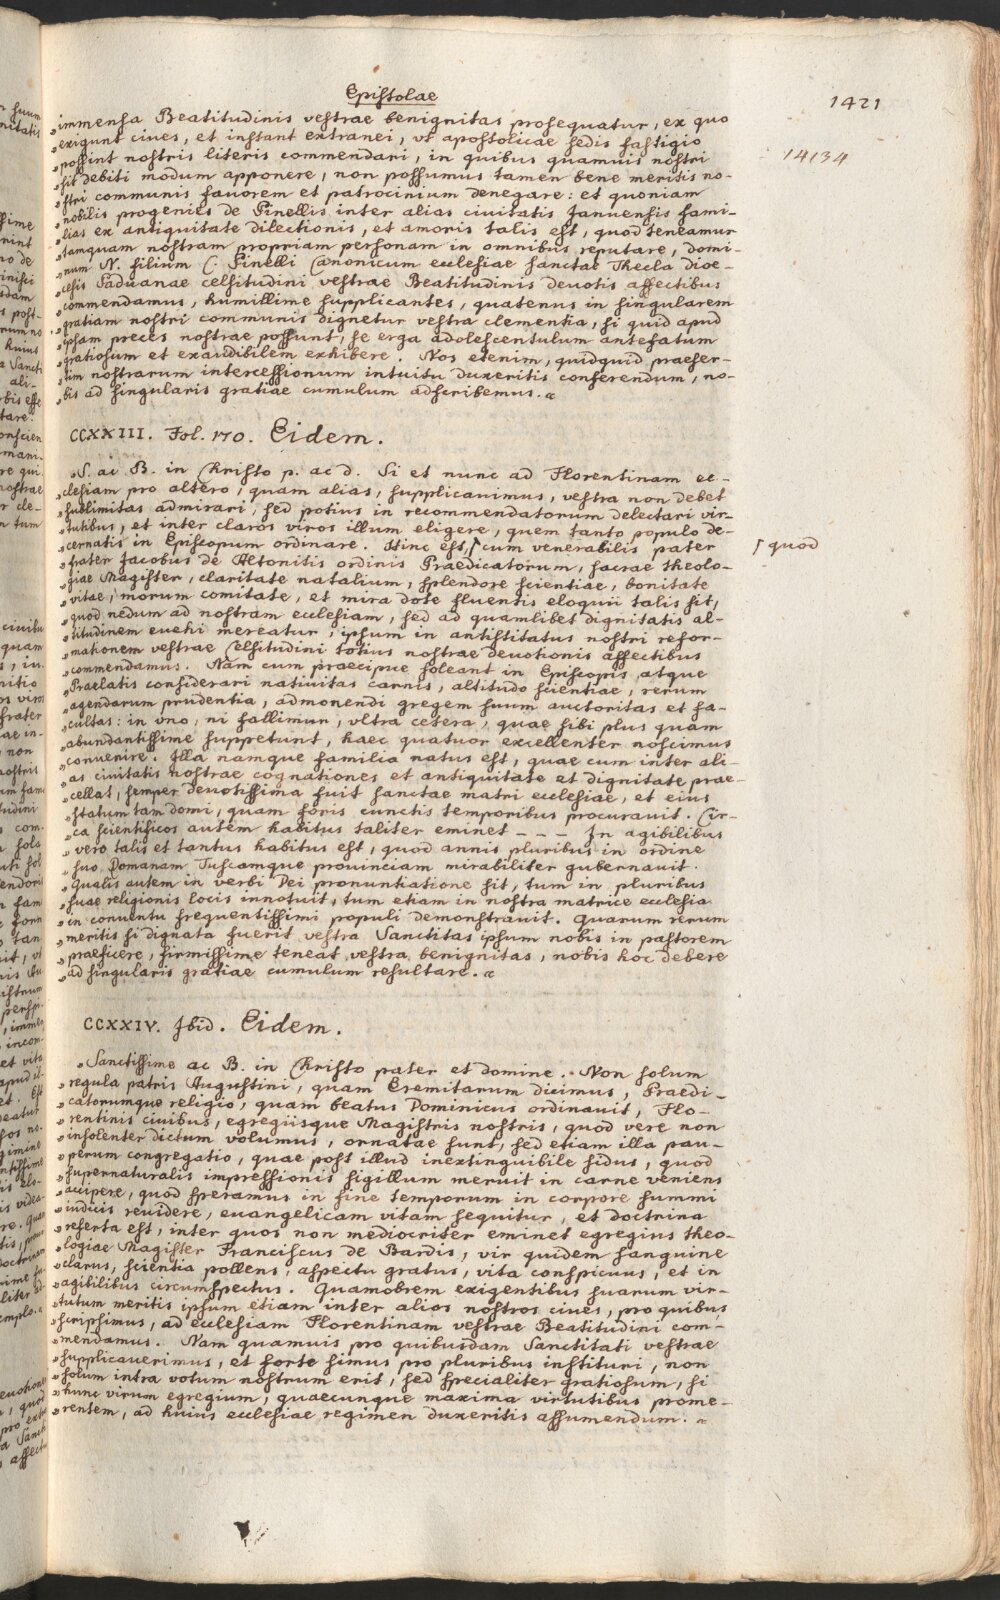 Epistolae
1421
14134
„immensa Beatitudinis vestrae benignitas prosequatur, ex quo
„exigunt ciues, et instant extranei, vt apostolicae sedis fastigio
„possint nostris literis commendari, in quibus quamuis nostri
„sit debiti modum apponere, non possumus tamen bene meritis no-
„stri communis fauorem et patrocinium denegare: et quoniam
„nobilis progenies de Pinellis inter alias ciuitatis Januensis fami-
„lias ex antiquitate dilectionis, et amoris talis est, quod teneamur
„tamquam nostram propriam personam in omnibus reputare, domi-
„num N. filium C. Pinelli Canonicum ecclesiae sanctae Thecla dioe-
„cesis Paduanae celsitudini vestrae Beatitudinis deuotis affectibus
„commendamus, humillime supplicantes, quatenus in singularem
„gratiam nostri communis dignetur vestra clementia, si quid apud
„ipsam preces nostrae possunt, se erga adolescentulum antefatum
„gratiosum et exaudibilem exhibere. Nos etenim, quidquid praeser-
„tim nostrarum intercessionum intuitu duxeritis conferendum, no-
„bis ad singularis gratiae cumulum adscribemus.„
CCXXIII. Fol. 170. Eidem.
„S. ac B. in Christo p. ac d. Si et nunc ad Florentinam ec-
„clesiam pro altero, quam alias, supplicauimus, vestra non debet
„sublimitas admirari, sed potius in recommendatorum delectari vir-
„tutibus, et inter claros viros illum eligere, quem tanto populo de-
„cernatis in Episcopum ordinare. Hinc est,⌈cum venerabilis pater
⌈quod
„frater Jacobus de Altonitis ordinis Praedicatorum, sacrae theolo-
„giae Magister, claritate natalium, splendore scientiae, bonitate
„vitae, morum comitate, et mira dote fluentis eloquii talis sit,
„quod nedum ad nostram ecclesiam, sed ad quamlibet dignitatis al-
„titudinem euehi mereatur, ipsum in antistitatus nostri refor-
„mationem vestrae Celsitudini totius nostrae deuotionis affectibus
„commendamus. Nam cum praecipue soleant in Episcopis atque
„Praelatis considerari natiuitas carnis, altitudo scientiae, rerum
„agendarum prudentia, admonendi gregem suum auctoritas et fa-
„cultas: in vno, ni fallimur, vltra cetera, quae sibi plus quam
„abundantissime suppetunt, haec quatuor excellenter noscimus
„conuenire. Illa namque familia natus est, quae cum inter ali-
„as ciuitatis nostrae cognationes et antiquitate et dignitate prae-
„cellat, semper deuotissima fuit sanctae matri ecclesiae, et eius
„statum tam domi, quam foris cunctis temporibus procurauit. Cir-
„ca scientificos autem habitus taliter eminet - - - In agibilibus
„vero talis et tantus habitus est, quod annis pluribus in ordine
„suo Romanam Tuscamque prouinciam mirabiliter gubernauit.
„Qualis autem in verbi Dei pronuntiatione sit, tum in pluribus
„suae religionis locis innotuit, tum etiam in nostra matrice ecclesia
„in conuentu frequentissimi populi demonstrauit. Quarum rerum
„meritis si dignata fuerit vestra Sanctitas ipsum nobis in pastorem
„praeficere, firmissime teneat vestra benignitas, nobis hoc debere
„ad singularis gratiae cumulum resultare.„
CCXXIV. Jbid. Eidem.
„Sanctissime ac B. in Christo pater et domine. Non solum
„regula patris Augustini, quam Eremitarum dicimus, Praedi-
„catorumque religio, quam beatus Dominicus ordinauit, Flo-
„rentinis ciuibus, egregiisque Magistris nostris, quod vere non
„insolenter dictum volumus, ornatae sunt, sed etiam illa pau-
„perum congregatio, quae post illud inextinguibile sidus, quod
„supernaturalis impressionis sigillum meruit in carne veniens
„accipere, quod speramus in fine temporum in corpore summi
„iudicis reuidere, euangelicam vitam sequitur, et doctrina
„referta est, inter quos non mediocriter eminet egregius theo-
„logiae Magister Franciscus de Bardis, vir quidem sanguine
„clarus, scientia pollens, aspectu gratus, vita conspicuus, et in
„agibilibus circumspectus. Quamobrem exigentibus suarum vir-
„tutum meritis ipsum etiam inter alios nostros ciues, pro quibus
„scripsimus, ad ecclesiam Florentinam vestrae Beatitudini com-
„mendamus. Nam quamuis pro quibusdam Sanctitati vestrae
„supplicauerimus, et forte simus pro pluribus instituri, non
„solum intra votum nostrum erit, sed specialiter gratiosum, si
„hunc virum egregium, quaecunque maxima virtutibus prome-
„rentem, ad huius ecclesiae regimen duxeritis assumendum.„